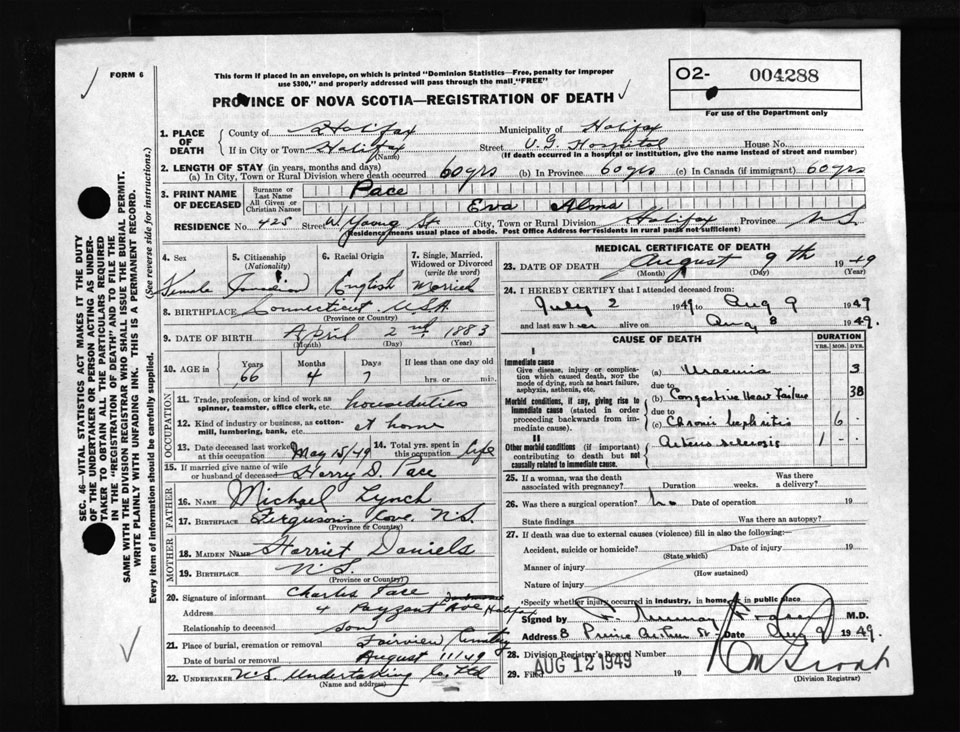 FORM 6
This form if placed in an envelope, on which is printed "Dominion Statistics—Free, penalty for improper
use $300," and properly addressed will pass through the mail "FREE"
O2- 004288
For use of the Department only
PROVINCE OF NOVA SCOTIA—REGISTRATION OF DEATH
1. PLACE OF DEATH
County of Halifax Municipality of Halifax
If in City or Town Halifax Street V.G. Hospital House No.
(Name) (If death occurred in a hospital or institution, give the name instead of street and number)
2. LENGTH OF STAY (in years, months and days)
(a) In City, Town or Rural Division where death occurred 60 yrs (b) In Province 60 yrs (c) In Canada (if immigrant) 60 yrs
3. PRINT NAME OF DECEASED
Surname or Last Name Pace
All Given or Christian Names Eva Alma
RESIDENCE No. 425 Street W. Young St City, Town or Rural Division Halifax Province N.S.
(Residence means usual place of abode. Post Office Address for residents in rural parts not sufficient)
4. Sex Female
5. Citizenship (Nationality) Canadian
6. Racial Origin English
7. Single, Married, Widowed or Divorced (write the word) Married
8. BIRTHPLACE Connecticut U.S.A.
(Province or Country)
9. DATE OF BIRTH April 2nd 1883
(Month) (Day) (Year)
10. AGE in Years Months Days If less than one day old
66 4 7 hrs. or min.
OCCUPATION
11. Trade, profession, or kind of work as spinner, teamster, office clerk, etc. houseduties
12. Kind of industry or business, as cotton-mill, lumbering, bank, etc. at home
13. Date deceased last worked at this occupation May 15/49
14. Total yrs. spent in this occupation life
15. If married give name of wife or husband of deceased Harry D. Pace
FATHER
16. NAME Michael Lynch
17. BIRTHPLACE Ferguson's Cove, N.S.
(Province or Country)
MOTHER
18. MAIDEN NAME Harriet Daniels
19. BIRTHPLACE N.S.
(Province or Country)
20. Signature of informant Charles Pace
Address 4 Payzant Ave Halifax
Relationship to deceased son
21. Place of burial, cremation or removal Fairview Cemetery
Date of burial or removal August 11/49
22. UNDERTAKER N.S. Undertaking Co. Ltd
(Name and address)
MEDICAL CERTIFICATE OF DEATH
23. DATE OF DEATH August 9th 1949
(Month) (Day) (Year)
24. I HEREBY CERTIFY that I attended deceased from:
July 2 1949 to Aug 9 1949
and last saw her alive on Aug 8 1949.
CAUSE OF DEATH
DURATION
YRS. MOS. DYS.
I
Immediate cause
Give disease, injury or complication which caused death, NOT the mode of dying, such as heart failure, asphyxia, asthenia, etc.
(a) Uraemia 3
due to
Morbid conditions, if any, giving rise to immediate cause (stated in order proceeding backwards from immediate cause).
(b) Congestive Heart Failure 38
due to
(c) Chronic Nephritis 6
II
Other morbid conditions (if important) contributing to death but not causally related to immediate cause.
Arterio sclerosis 1
25. If a woman, was the death associated with pregnancy? Duration weeks. Was there a delivery?
26. Was there a surgical operation? No Date of operation 19
State findings Was there an autopsy?
27. If death was due to external causes (violence) fill in also the following:—
Accident, suicide or homicide? Date of injury 19
(State which)
Manner of injury
(How sustained)
Nature of injury
Specify whether injury occurred in industry, in home, or in public place
Signed by M.D.
Address 8 Prince Arthur St. Date Aug 9 1949.
28. Division Registrar's Record Number
29. Filed AUG 12 1949 19
(Division Registrar)
SEC. 46—VITAL STATISTICS ACT MAKES IT THE DUTY
OF THE UNDERTAKER OR PERSON ACTING AS UNDER-
TAKER TO OBTAIN ALL THE PARTICULARS REQUIRED
IN THE "REGISTRATION OF DEATH" AND TO FILE THE
SAME WITH THE DIVISION REGISTRAR WHO SHALL ISSUE THE BURIAL PERMIT.
WRITE PLAINLY WITH UNFADING INK. THIS IS A PERMANENT RECORD.
Every item of information should be carefully supplied. (See reverse side for instructions.)